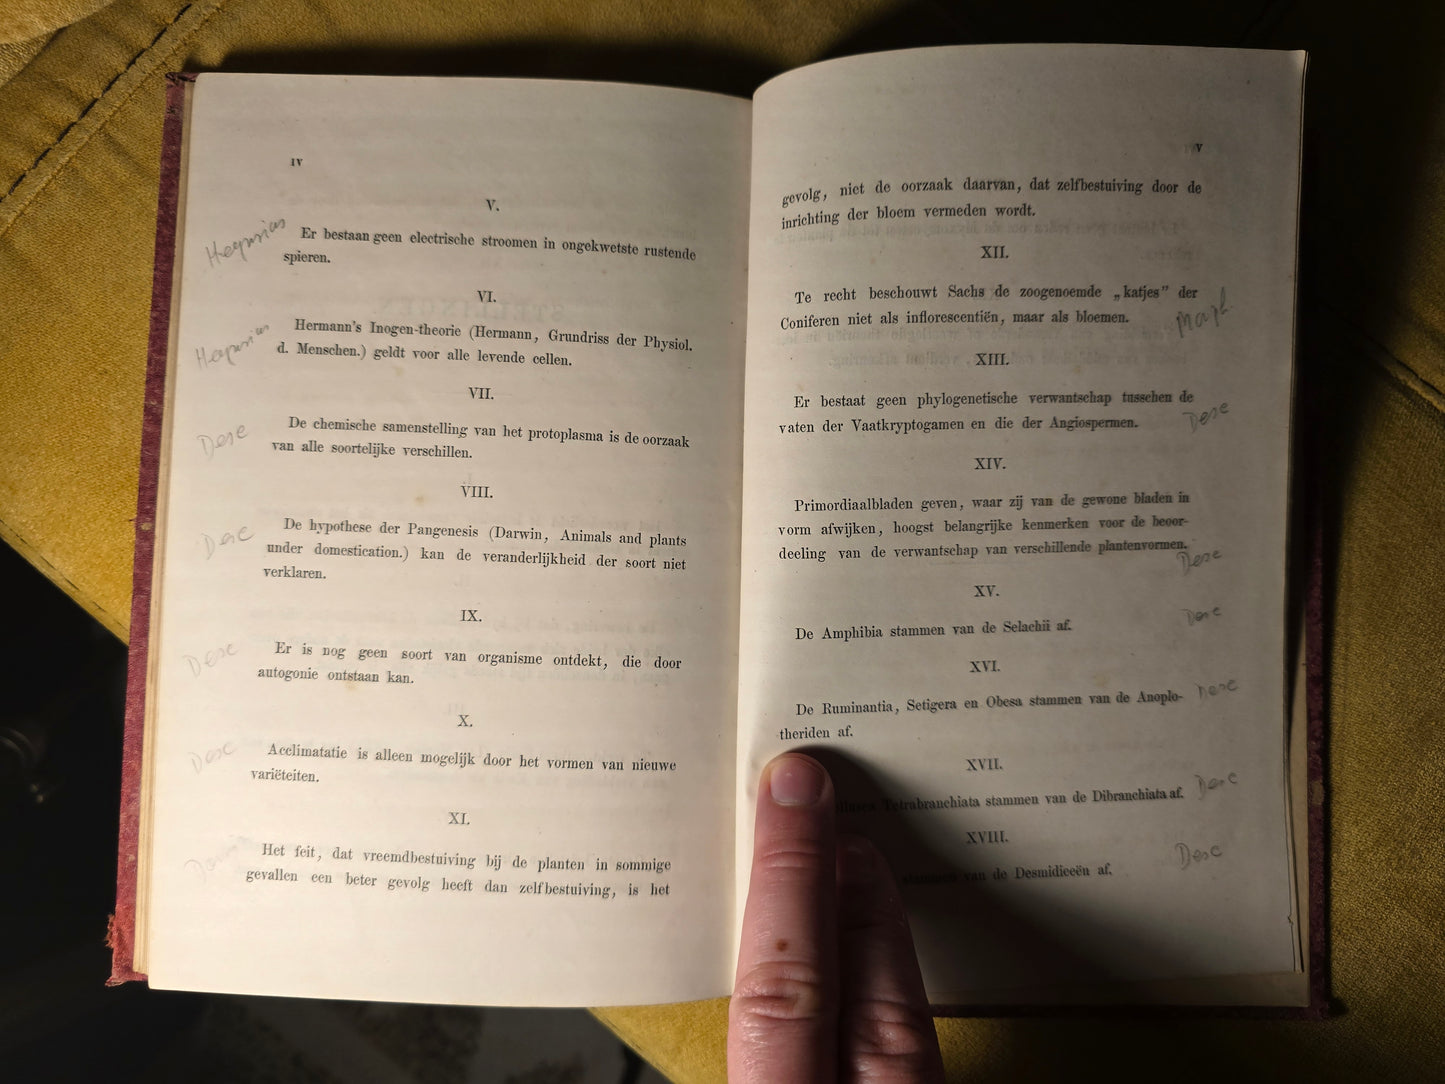 IV
V.
Heynsius
Er bestaan geen electrische stroomen in ongekwetste rustende
spieren.
VI.
Heynsius
Hermann's Inogen-theorie (Hermann, Grundriss der Physiol.
d. Menschen.) geldt voor alle levende cellen.
VII.
Desc
De chemische samenstelling van het protoplasma is de oorzaak
van alle soortelijke verschillen.
VIII.
Desc
De hypothese der Pangenesis (Darwin, Animals and plants
under domestication.) kan de veranderlijkheid der soort niet
verklaren.
IX.
Desc
Er is nog geen soort van organisme ontdekt, die door
autogonie ontstaan kan.
X.
Desc
Acclimatatie is alleen mogelijk door het vormen van nieuwe
variëteiten.
XI.
Het feit, dat vreemdbestuiving bij de planten in sommige
gevallen een beter gevolg heeft dan zelfbestuiving, is het
V
gevolg, niet de oorzaak daarvan, dat zelfbestuiving door de
inrichting der bloem vermeden wordt.
XII.
Te recht beschouwt Sachs de zoogenoemde „katjes” der
Coniferen niet als inflorescentiën, maar als bloemen.
Morph
XIII.
Er bestaat geen phylogenetische verwantschap tusschen de
vaten der Vaatkryptogamen en die der Angiospermen.
Desc
XIV.
Primordiaalbladen geven, waar zij van de gewone bladen in
vorm afwijken, hoogst belangrijke kenmerken voor de beoor-
deeling van de verwantschap van verschillende plantenvormen.
Desc
XV.
De Amphibia stammen van de Selachii af.
Desc
XVI.
De Ruminantia, Setigera en Obesa stammen van de Anoplo-
theriden af.
Desc
XVII.
Tetrabranchiata stammen van de Dibranchiata af.
Desc
XVIII.
stammen van de Desmidieeën af.
Desc